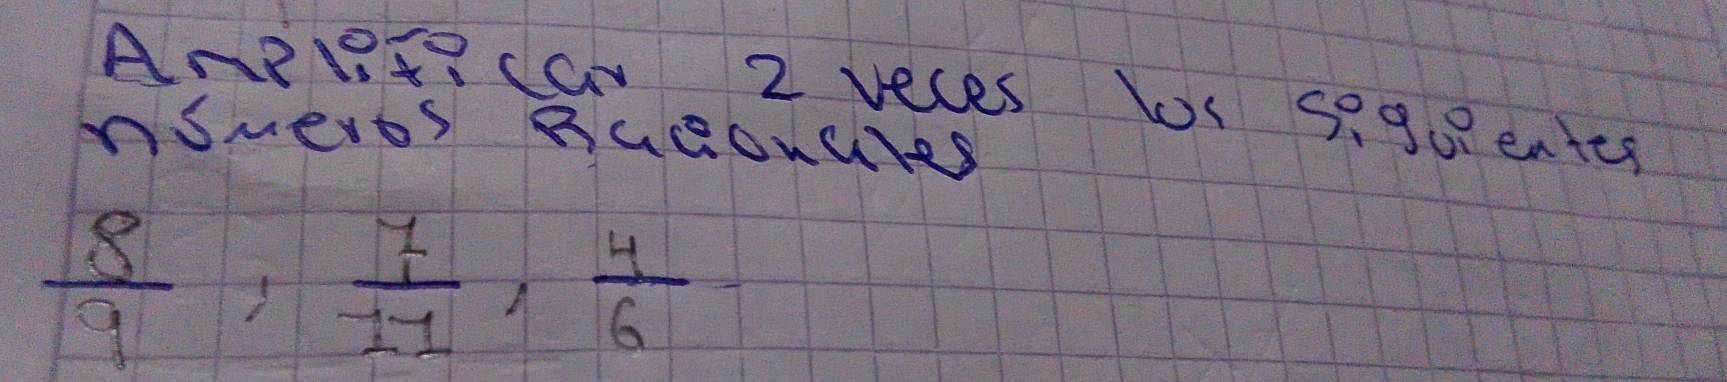 Amplificar 2 veces los siguientes
números Racionales
8/9, 7/11, 4/6